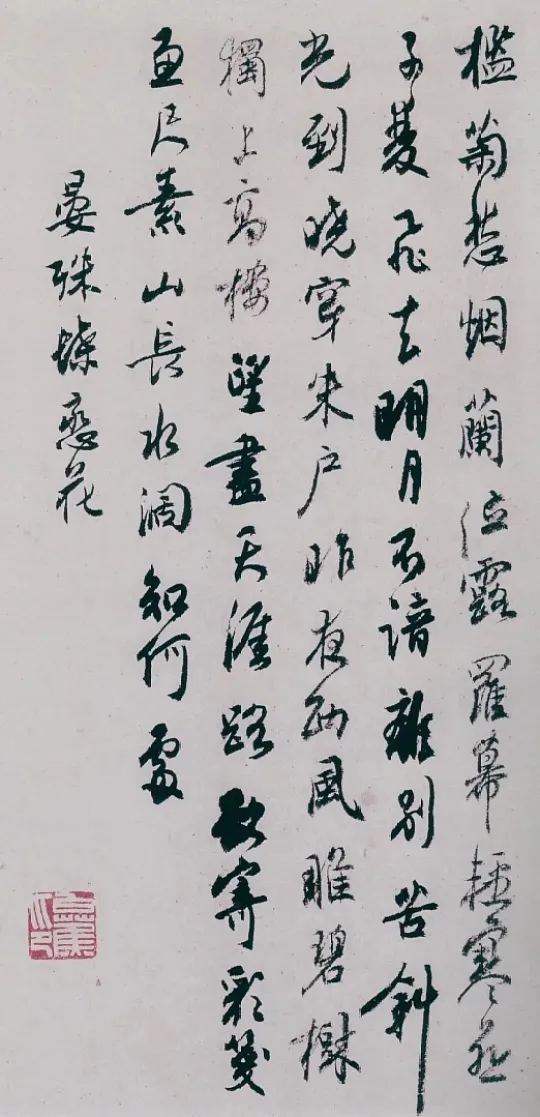 檻菊愁烟蘭泣露羅幕輕寒燕
子雙飛去明月不諳離別苦斜
光到曉穿朱户昨夜西風雕碧樹
獨上高樓望盡天涯路欲寄彩箋
兼尺素山長水闊知何處
晏殊蝶戀花